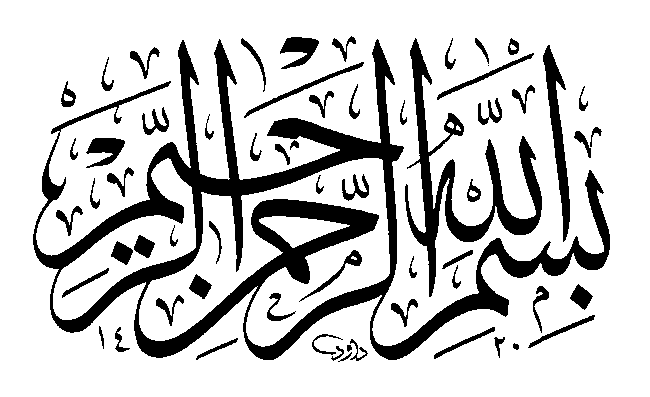 بسم الله الرحمن الرحيم
١٤ داود ٢٠